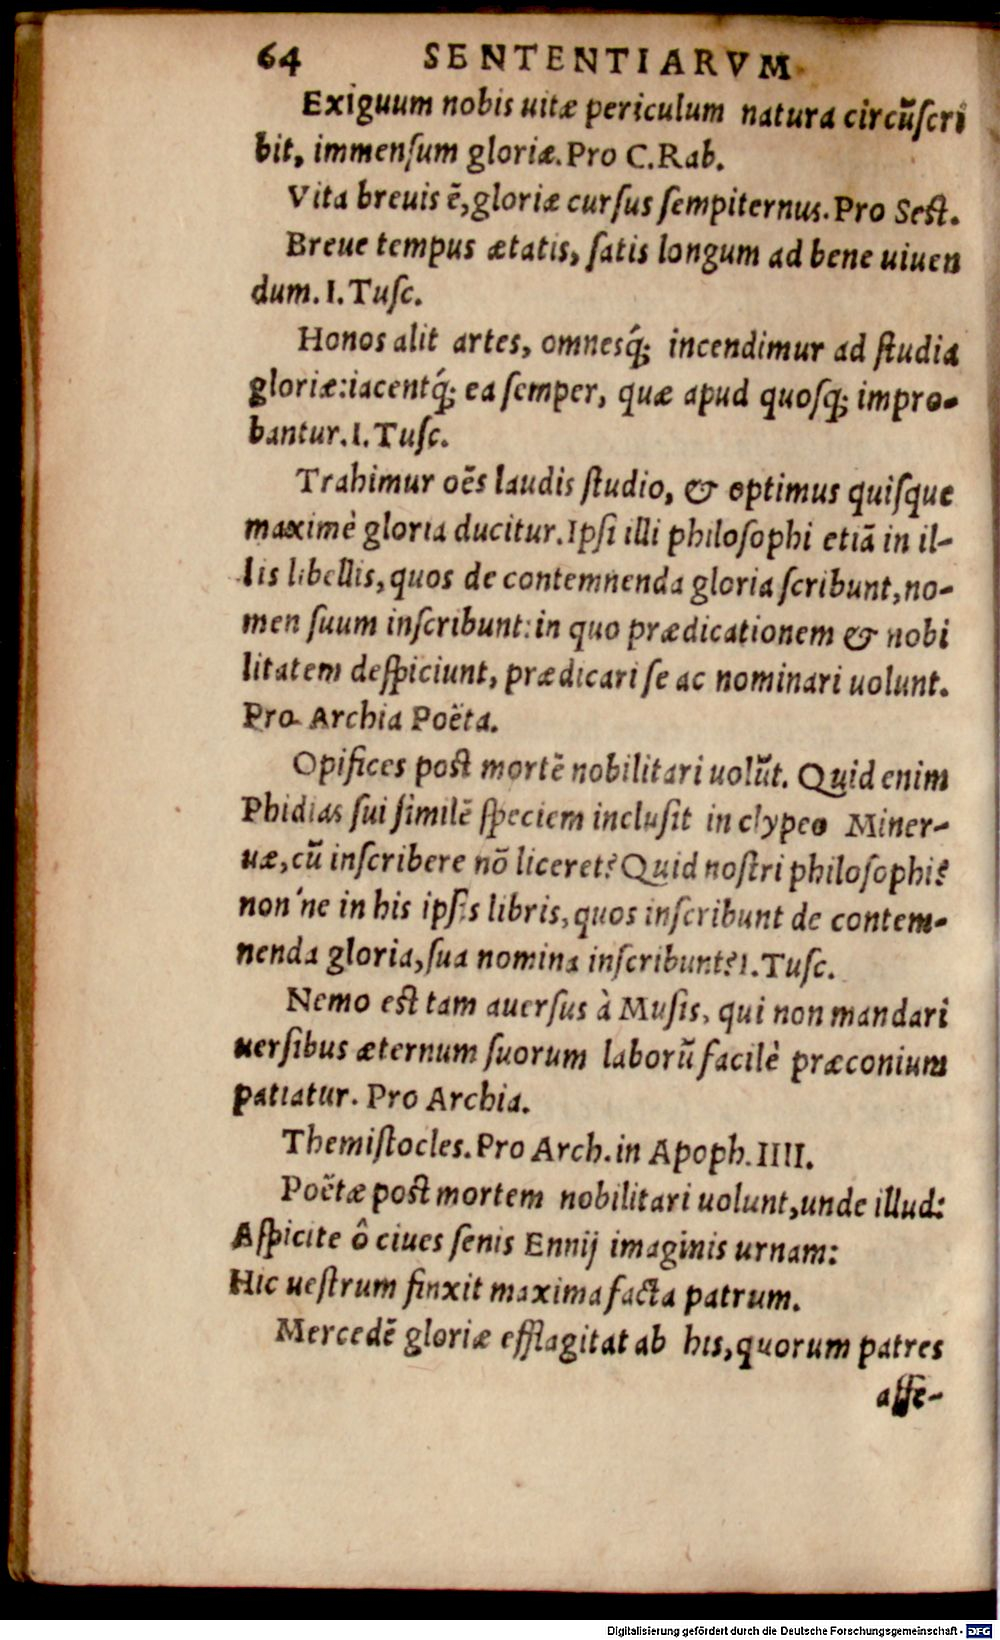 64 SENTENTIARVM
Exiguum nobis uitæ periculum natura circũſcri
bit, immenſum gloriæ. Pro C. Rab.
Vita breuis ẽ, gloriæ curſus ſempiternus. Pro Sest.
Breue tempus ætatis, ſatis longum ad bene uiuen
dum. I. Tuſc.
Honos alit artes, omnesq́; incendimur ad ſtudia
gloriæ: iacentq́; ea ſemper, quæ apud quoſq; impro-
bantur. I. Tuſc.
Trahimur oẽs laudis ſtudio, & optimus quiſque
maximè gloria ducitur. Ipſi illi philoſophi etiã in il-
lis libellis, quos de contemnenda gloria ſcribunt, no-
men ſuum inſcribunt: in quo prædicationem & nobi
litatem deſpiciunt, prædicari ſe ac nominari uolunt.
Pro Archia Poëta.
Opifices post mortẽ nobilitari uolũt. Quid enim
Phidias ſui ſimilẽ ſpeciem incluſit in clypeo Miner-
uæ, cũ inſcribere nõ liceret? Quid noſtri philoſophi?
non'ne in his ipſis libris, quos inſcribunt de contem-
nenda gloria, ſua nomina inſcribunt? I. Tuſc.
Nemo est tam auerſus à Muſis, qui non mandari
uerſibus æternum ſuorum laborũ facilè præconium
patiatur. Pro Archia.
Themiſtocles. Pro Arch. in Apoph. IIII.
Poëtæ post mortem nobilitari uolunt, unde illud:
Aſpicite ô ciues ſenis Ennij imaginis urnam:
Hic ueſtrum finxit maxima facta patrum.
Mercedẽ gloriæ efflagitat ab his, quorum patres
affe-
Digitalisierung gefördert durch die Deutsche Forschungsgemeinschaft - DFG